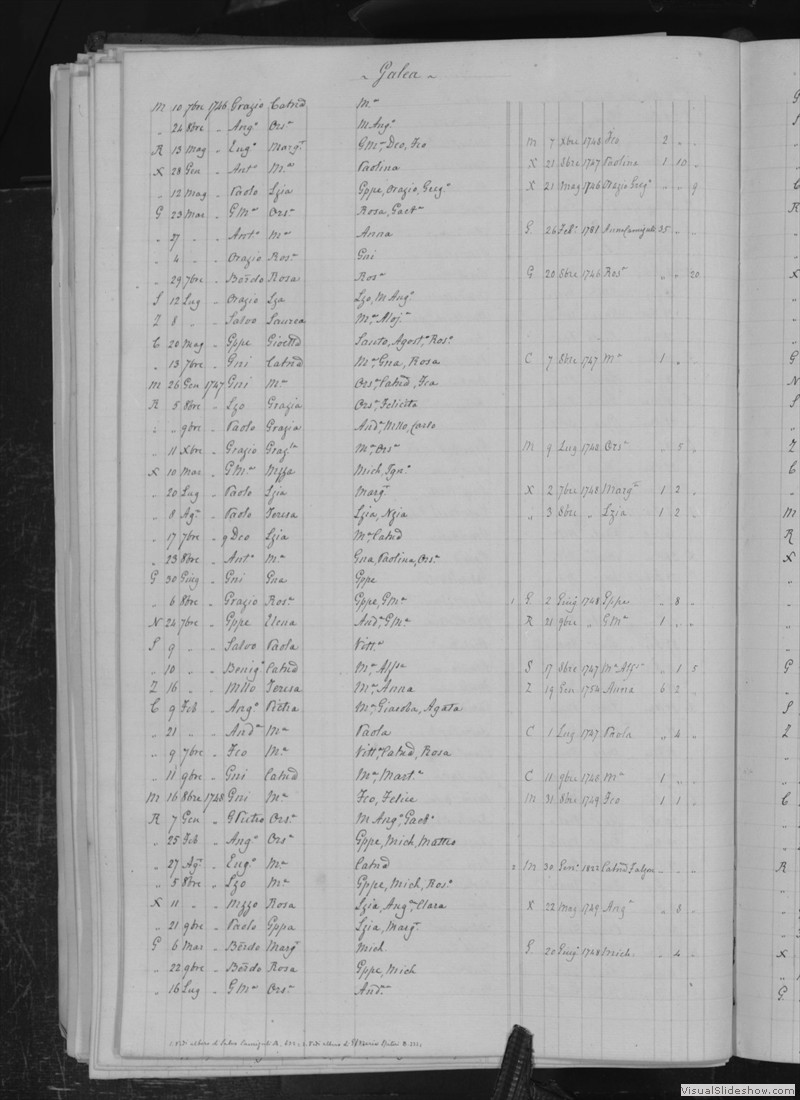 ~ Galea ~
M 10 7bre 1746 Grazio Catnd Mª
„ 24 8bre „ Angº Orsª M Angª
R 13 Mag „ Eugº Margª GMª, Dco, Fco M 7 Xbre 1748 Fco 2 „ „
X 28 Gen „ Antº Mª Paolina X 21 8bre 1747 Paolina 1 10 „
„ 12 Mag „ Paolo Lzia Gppe, Orazio, Gregº X 21 Mag 1746 Orazio Gregº „ „ 9
G 23 Mar „ GMª Orsª Rosa, Gaetª
„ 27 „ „ Antº Mª Anna G 26 Febº 1781 Anna 35 „
„ 4 „ „ Orazio Rosª Gni
„ 29 7bre „ Bord̄o Rosa Rosª G 20 8bre 1746 Rosª „ „ 20
S 12 Lug „ Orazio Lza Lzo, M Angº
Z 8 „ „ Salvo Laurea Mª, Alojª
C 20 Mag „ Gppe Santo, Agostº, Rosª
„ 13 7bre „ Gni Catnd Mª, Gna, Rosa C 7 8bre 1747 Mª 1 „ „
M 26 Gen 1747 Gni Mª Orsª, Catnd, Fca
R 5 8bre „ Lzo Grazia Orsª, Felicita
„ „ 9bre „ Paolo Grazia Andª, Mllo, Carlo
„ 11 Xbre „ Grazio Grazla Mª, Orsª M 9 Lug 1740 Orsª „ 5 „
X 10 Mar „ GMª Nzza Mich, Ignº
„ 20 Lug „ Paolo Lzia Margª X 2 7bre 1748 Margª 1 2 „
„ 8 Agº „ Paolo Teresa Lzia, Nzia „ 3 8bre „ Lzia 1 2 „
„ 17 7bre „ Dco Lzia Mª, Catnd
„ 23 8bre „ Antº Mª Gna, Paolina, Orsª
G 30 Giug „ Gni Gna Gppe
„ 6 8bre „ Grazio Rosª Gppe, GMª 1 G 2 Giug 1748 Gppe „ 8 „
N 24 7bre „ Gppe Elena Andª, GMª R 21 9bre „ GMª 1 „ „
S 9 „ „ Salvo Paola Vittª
„ 10 „ „ Benigº Catnd Mª, Alfsa S 17 8bre 1747 Mª Alfsa „ 1 5
Z 16 „ „ Mllo Teresa Mª, Anna Z 19 Gen 1754 Anna 6 2 „
C 9 Feb „ Angº Pietra Mª, Giacoba, Agata
„ 21 „ „ Andª Mª Paola C 1 Lug 1747 Paola „ 4 „
„ 9 7bre „ Fco Mª Vittª, Catnd, Rosa
„ 11 9bre „ Gni Catnd Mª, Martª C 11 9bre 1740 Mª 1 „ „
M 16 8bre 1748 Gni Mª Fco, Felice M 31 8bre 1749 Fco 1 1 „
R 7 Gen „ G Pietro Orsª M Angª, Gaetº
„ 25 Feb „ Angº Orsª Gppe, Mich, Matteo
„ 27 Agº „ Eugº Mª Catnd 2 M 30 1822 Catnd „ „ „
„ 5 8bre „ Lzo Mª Gppe, Mich, Rosª
X 11 „ „ Nzzo Rosa Lzia, Angª, Clara X 22 Mag 1749 Angª „ 8 „
„ 21 9bre „ Paolo Gppa Lzia, Margª
G 6 Mar „ Bērdo Margª Mich G 20 Giug 1748 Mich „ 4 „
„ 22 9bre „ Bērdo Rosa Gppe, Mich
„ 16 Lug „ GMª Orsª Andª
VisualSlideshow.com